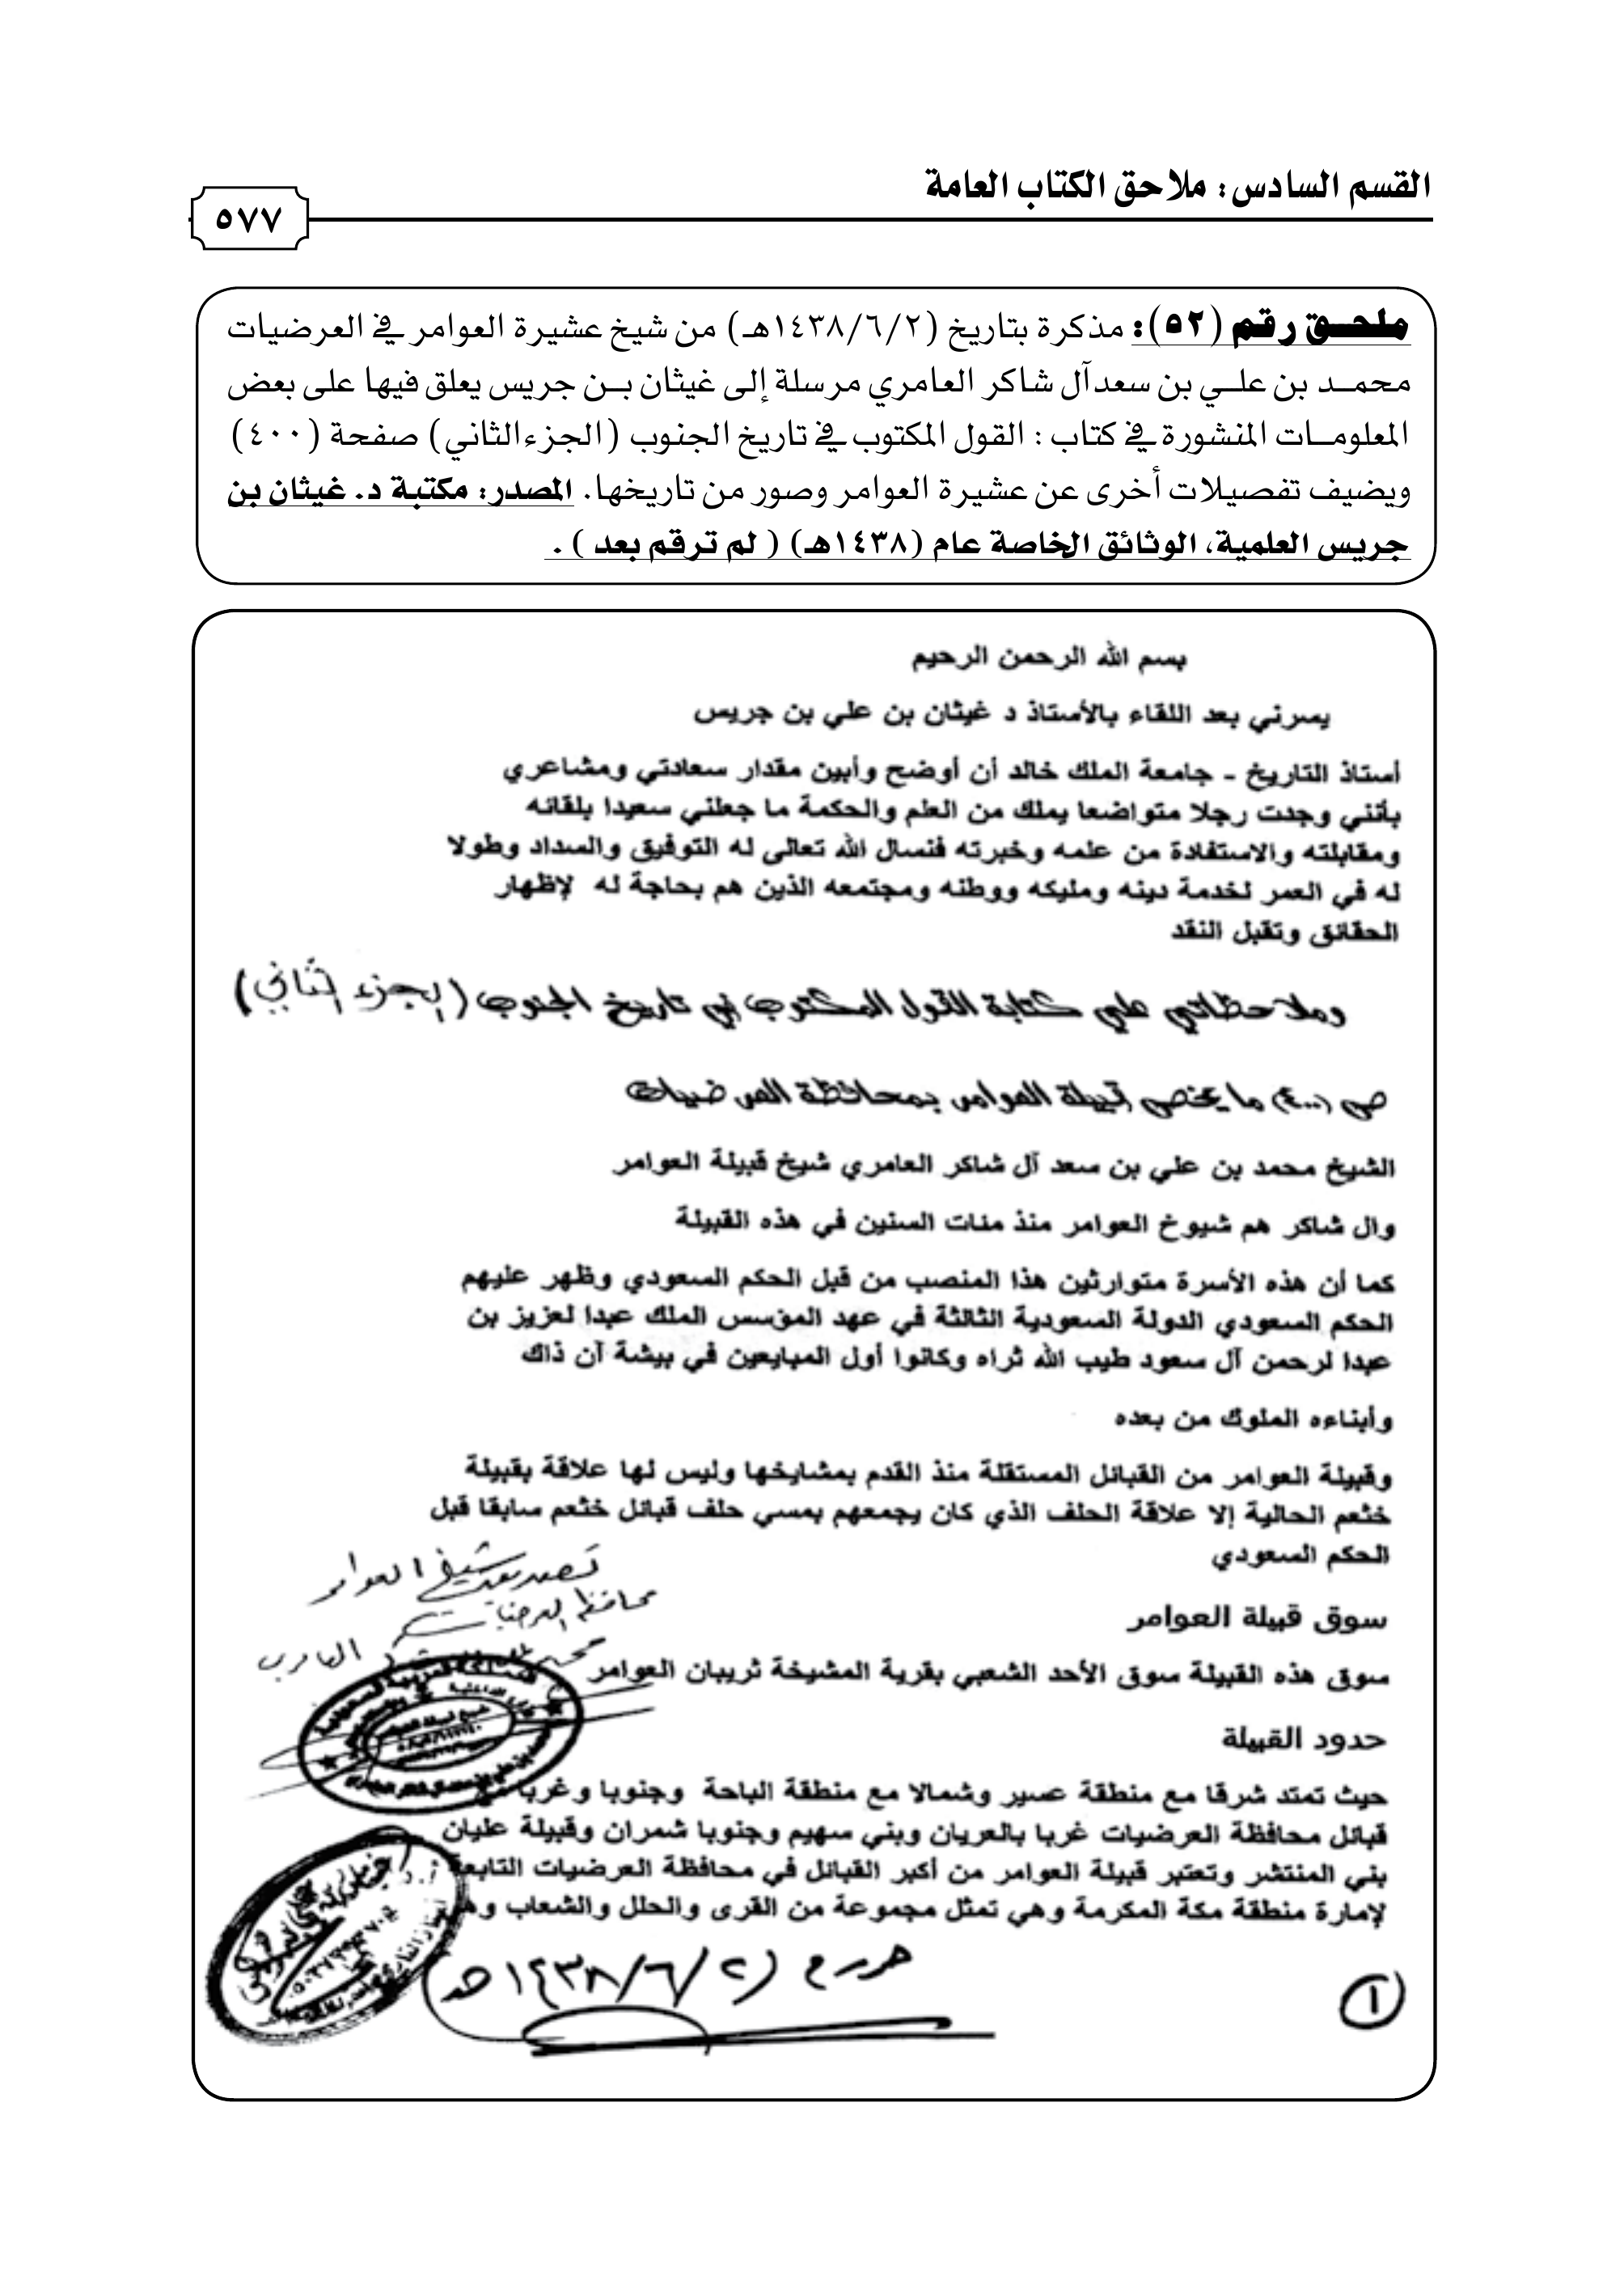 القسم السادس: ملاحق الكتاب العامة
٥٧٧
ملحـــق رقم (٥٢): مذكرة بتاريخ (١٤٣٨/٦/٢هـ) من شيخ عشيرة العوامر في العرضيات
محمـــد بن علـــي بن سعدآل شاكر العامري مرسلة إلى غيثان بـــن جريس يعلق فيها على بعض
المعلومـــات المنشورة في كتاب : القول المكتوب في تاريخ الجنوب (الجزء الثاني) صفحة (٤٠٠)
ويضيف تفصيلات أخرى عن عشيرة العوامر وصور من تاريخها. المصدر: مكتبة د. غيثان بن
جريس العلمية، الوثائق الخاصة عام (١٤٣٨هـ) ( لم ترقم بعد ) .
بسم الله الرحمن الرحيم
يسرني بعد اللقاء بالأستاذ د غيثان بن علي بن جريس
أستاذ التاريخ - جامعة الملك خالد أن أوضح وأبين مقدار سعادتي ومشاعري
بأنني وجدت رجلا متواضعا يملك من العلم والحكمة ما جعلني سعيدا بلقائه
ومقابلته والاستفادة من علمه وخبرته فنسال الله تعالى له التوفيق والسداد وطولا
له في العمر لخدمة دينه ومليكه ووطنه ومجتمعه الذين هم بحاجة له لإظهار
الحقائق وتقبل النقد
وملاحظاتي علي كتابة القول المكتوب في تاريخ الجنوب (الجزء الثاني)
ص (٤٠٠) ما يخص قبيلة العوامر بمحافظة العرضيات
الشيخ محمد بن علي بن سعد آل شاكر العامري شيخ قبيلة العوامر
وال شاكر هم شيوخ العوامر منذ منات السنين في هذه القبيلة
كما أن هذه الأسرة متوارثين هذا المنصب من قبل الحكم السعودي وظهر عليهم
الحكم السعودي الدولة السعودية الثالثة في عهد المؤسس الملك عبدا لعزيز بن
عبدا لرحمن آل سعود طيب الله ثراه وكانوا أول المبايعين في بيشة آن ذاك
وأبناءه الملوك من بعده
وقبيلة العوامر من القبائل المستقلة منذ القدم بمشايخها وليس لها علاقة بقبيلة
خثعم الحالية إلا علاقة الحلف الذي كان يجمعهم بمسي حلف قبائل خثعم سابقا قبل
الحكم السعودي
شيخ العوامر
محافظة العرضيات
سوق قبيلة العوامر
سوق هذه القبيلة سوق الأحد الشعبي بقرية المشيخة ثريبان العوامر
حدود القبيلة
حيث تمتد شرقا مع منطقة عسير وشمالا مع منطقة الباحة وجنوبا وغربا مع
قبائل محافظة العرضيات غربا بالعريان وبني سهيم وجنوبا شمران وقبيلة عليان
بني المنتشر وتعتبر قبيلة العوامر من أكبر القبائل في محافظة العرضيات التابعة
لإمارة منطقة مكة المكرمة وهي تمثل مجموعة من القرى والحلل والشعاب وهي
حرر في (١٤٣٨/٦/٢هـ
١